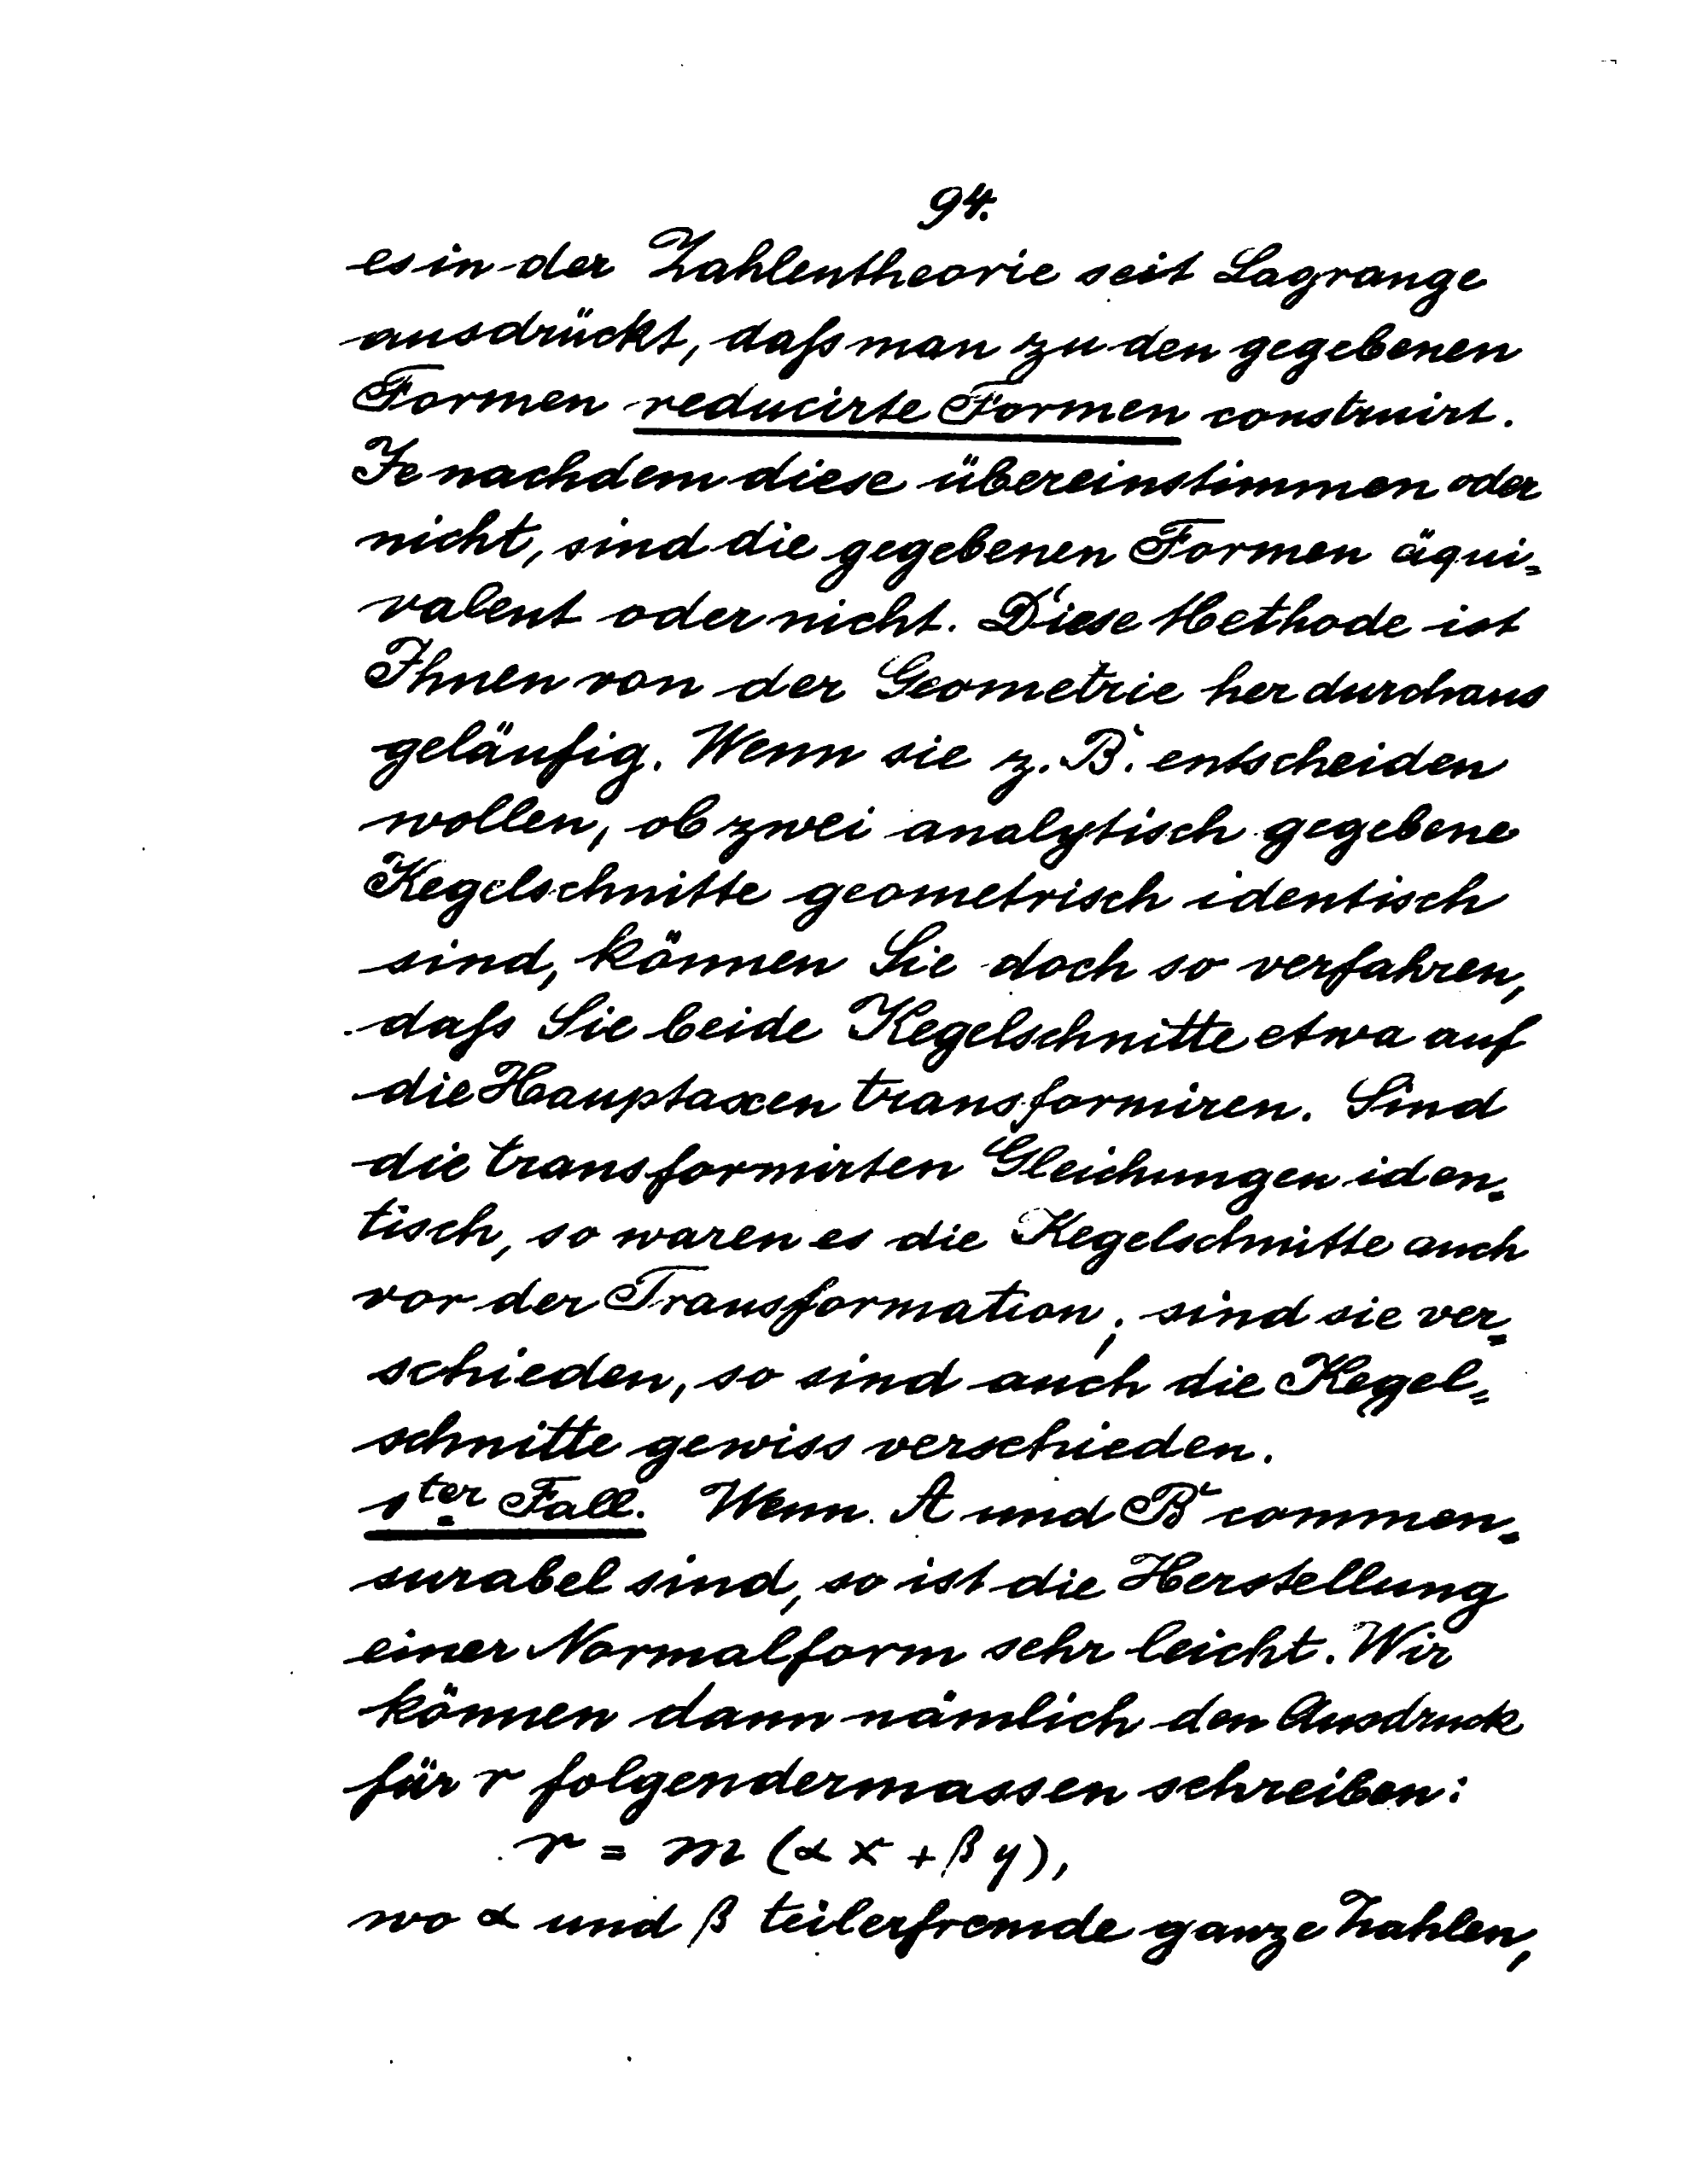 94.
es in der Zahlentheorie seit Lagrange
ausdrückt, daſs man zu den gegebenen
Formen reducirte Formen construirt.
Je nachdem diese übereinstimmen oder
nicht, sind die gegebenen Formen äqui-
valent oder nicht. Diese Methode ist
Ihnen von der Geometrie her durchaus
geläufig. Wenn sie z. B. entscheiden
wollen, ob zwei analytisch gegebene
Kegelschnitte geometrisch identisch
sind, können Sie doch so verfahren,
daſs Sie beide Kegelschnitte etwa auf
die Hauptaxen transformiren. Sind
die transformirten Gleichungen iden-
tisch, so waren es die Kegelschnitte auch
vor der Transformation; sind sie ver-
schieden, so sind auch die Kegel-
schnitte gewiss verschieden.
1ter Fall. Wenn A und B commen-
surabel sind, so ist die Herstellung
einer Normalform sehr leicht. Wir
können dann nämlich den Ausdruck
für r folgendermassen schreiben:
r = m (α x + β y),
wo α und β teilerfremde ganze Zahlen,